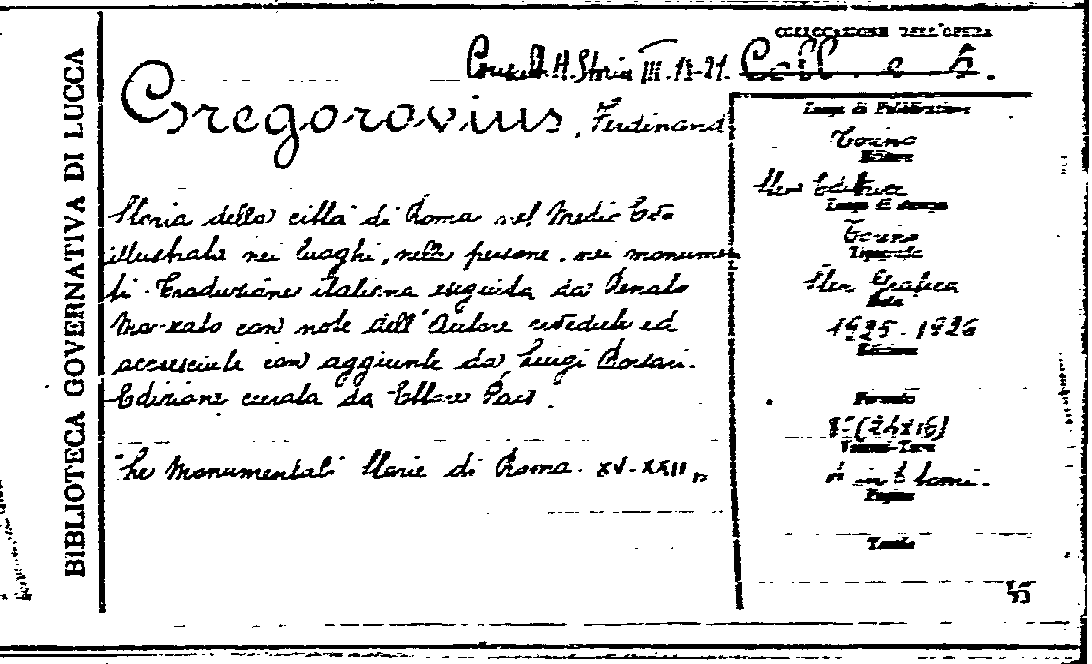 BIBLIOTECA GOVERNATIVA DI LUCCA
COLLOCAZIONE DELL'OPERA
Consult. H. Storia III. 13-21. Coll. e 5.
Gregorovius, Ferdinand
Storia della città di Roma nel Medio Evo
illustrata nei luoghi, nelle persone, nei monumen
ti. Traduzione italiana eseguita da Renato
Manzato con note dell'Autore rivedute ed
accresciute con aggiunte da Luigi Borsari.
Edizione curata da Ettore Pais.
"Le Monumentali Storie di Roma. XV-XXII"
Luogo di Pubblicazione
Torino
Editore
Sten Editrice
Luogo di stampa
Torino
Tipografia
Sten Grafica
Data
1925-1926
Edizione
Formato
8° (24x16)
Volume-Tomo
in tomi.
Pagine
Tavole